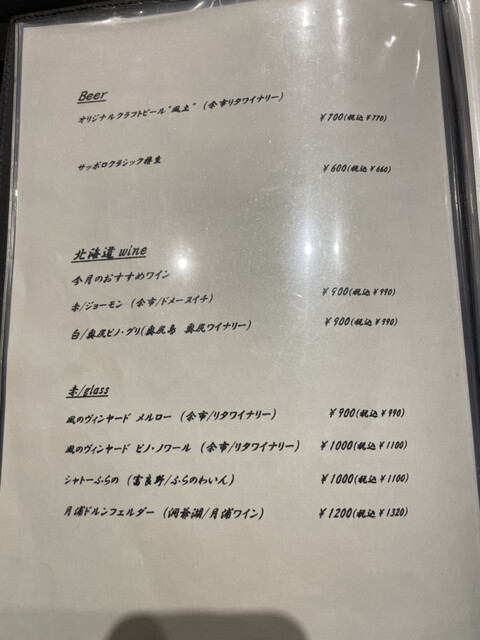 Beer
オリジナルクラフトビール"風土" (余市リタワイナリー) ¥700(税込¥770)
サッポロクラシック樽生 ¥600(税込¥660)
北海道 wine
今月のおすすめワイン
赤/ジョーモン (余市/ドメーヌイチ) ¥900(税込¥990)
白/奥尻ピノ・グリ(奥尻島 奥尻ワイナリー) ¥900(税込¥990)
赤/glass
風のヴィンヤード メルロー (余市/リタワイナリー) ¥900(税込¥990)
風のヴィンヤード ピノ・ノワール (余市/リタワイナリー) ¥1000(税込¥1100)
シャトーふらの (富良野/ふらのわいん) ¥1000(税込¥1100)
月浦ドルンフェルダー (洞爺湖/月浦ワイン) ¥1200(税込¥1320)